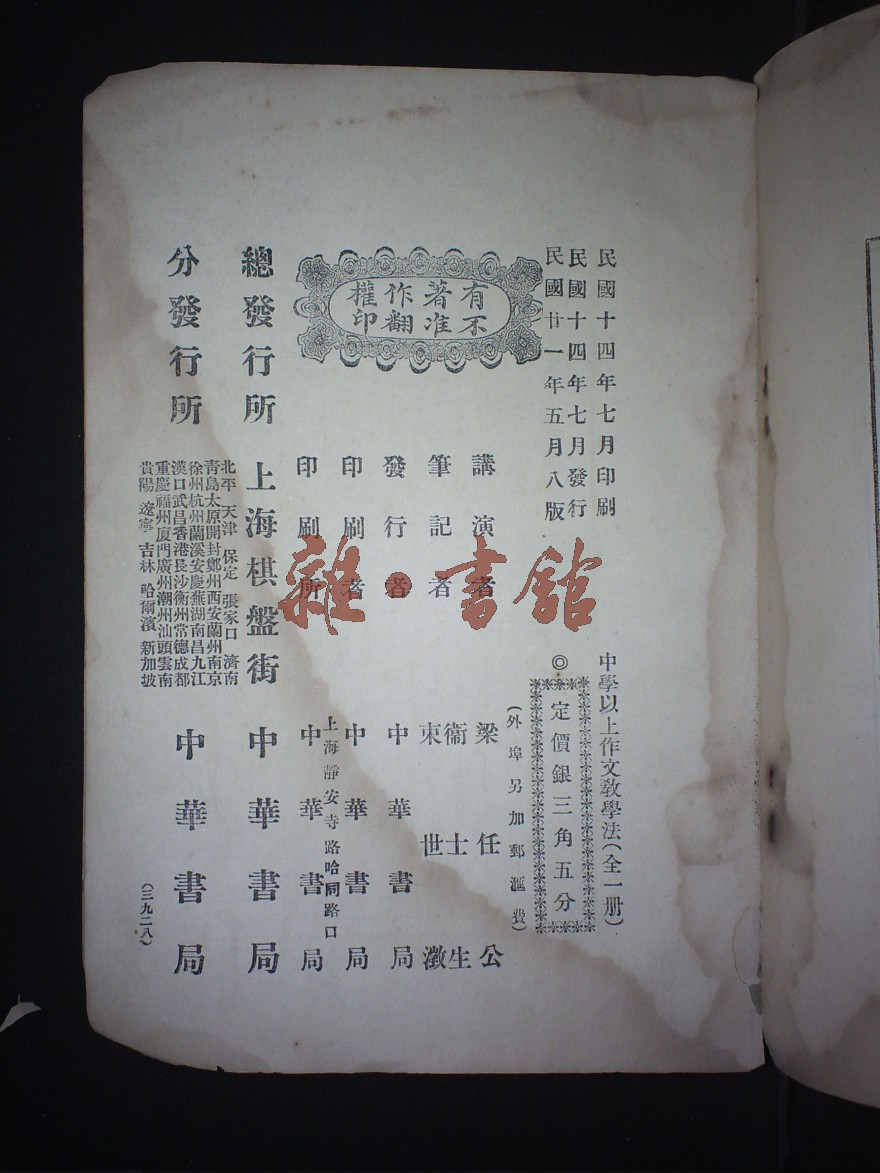 民國十四年七月印刷
民國十四年七月發行
民國廿一年五月八版
中學以上作文教學法(全一册)
◎定價銀三角五分
(外埠另加郵滙費)
有不
著准
作翻
權印
講演者 梁任公
筆記者 衞士生
束世澂
發行者 中華書局
印刷者 中華書局
上海靜安寺路哈同路口
印刷所 中華書局
總發行所 上海棋盤街 中華書局
分發行所
北平 天津 保定 張家口 濟南
青島太原開封鄭州西安蘭州南京
徐州杭州蘭溪安慶蕪湖南昌九江
漢口武昌香港長沙衡州常德成都
重慶福州厦門廣州潮州汕頭雲南
貴陽 遼寧 吉林 哈爾濱 新加坡
中華書局
(三九二八)
雜·書館